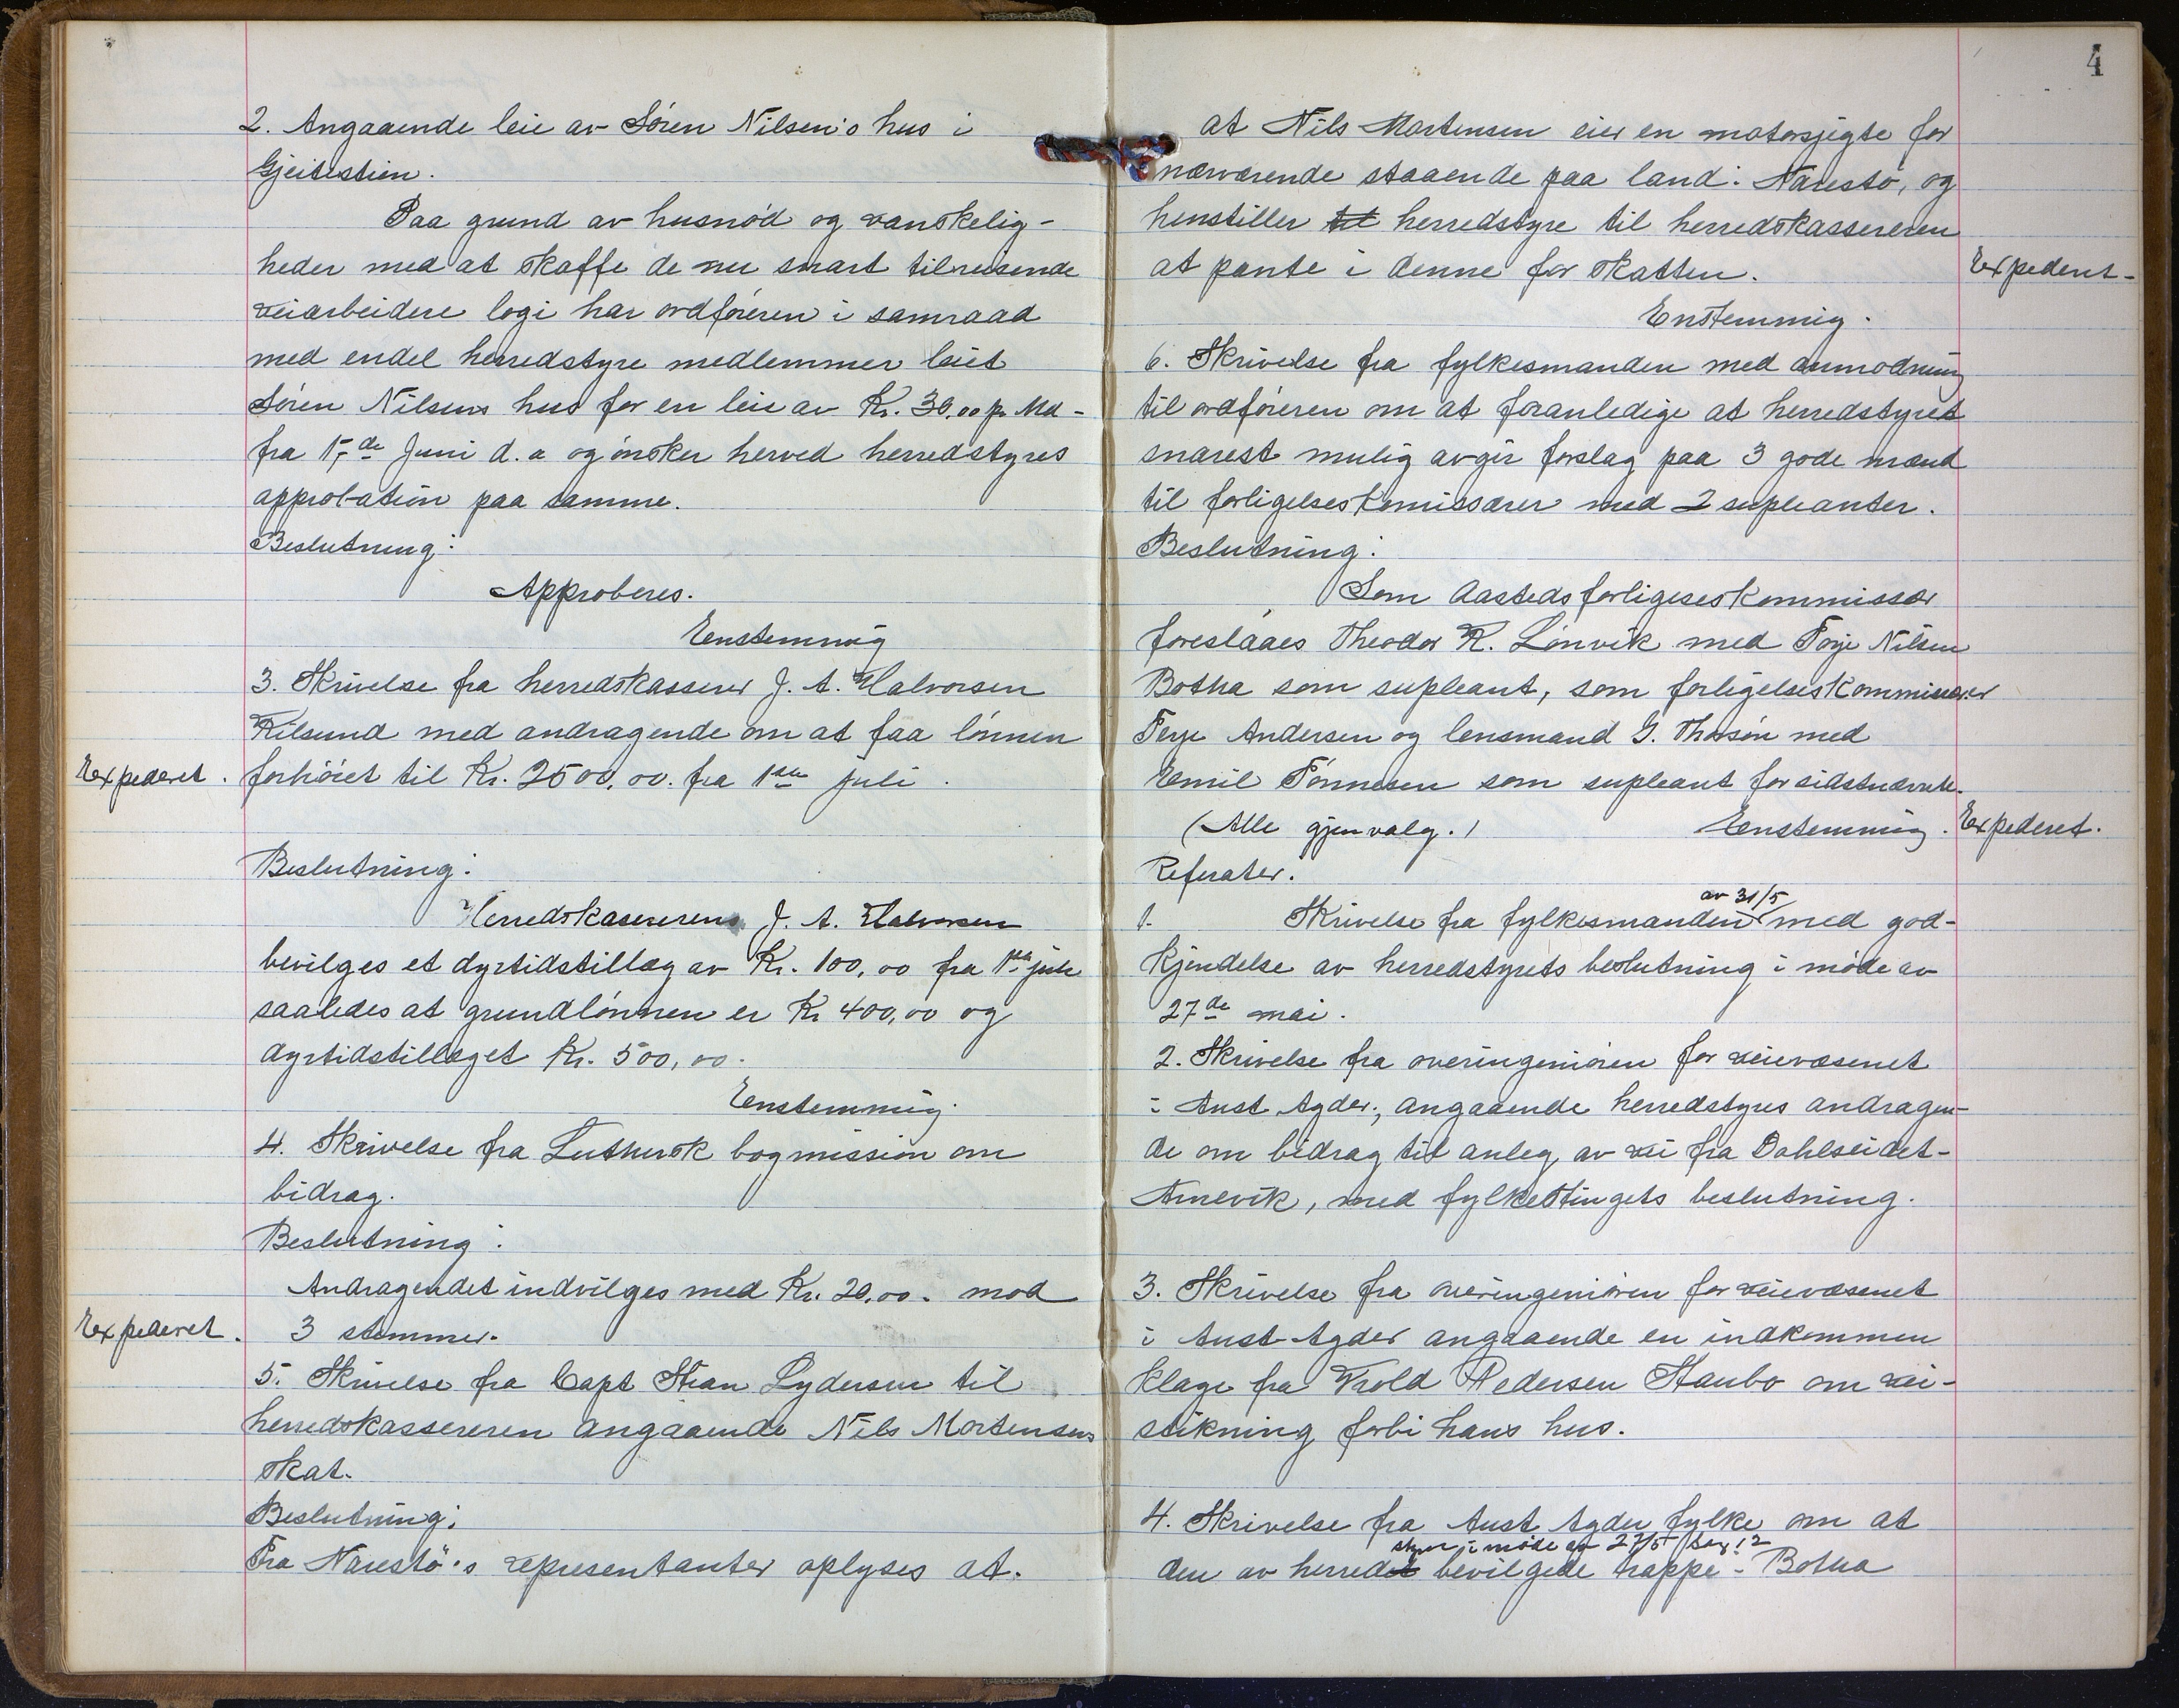 2. Angaaende leie av Sören Nilsen's hus i
Gjeitestien.
Paa grund av husnöd og vanskelig-
heder med at skaffe de nu snart tilreisende
veiarbeidere logi har ordföreren i samraad
med endel herredstyre medlemmer leiet
Sören Nilsens hus for en leie av Kr. 30,00 pr. Md-
fra 15de Juni d.a og önsker herved herredstyres
approbation paa samme.
Beslutning:
Approberes.
Enstemmig
3. Skrivelse fra herredskasserer J. A. Halvorsen
Kilsund med andragende om at faa lönnen
Expederet. forhöiet til Kr. 2500,00. fra 1ste juli.
Beslutning:
Herredskassererens J. A. Halvorsen
bevilges et dyrtidstillæg av Kr. 100,00 fra 1ste juli
saaledes at grundlönnen er Kr 400,00 og
dyrtidstillæget Kr. 500,00.
Enstemmig.
4. Skrivelse fra Luthersk bogmission om
bidrag.
Beslutning:
Andragendet indvilges med Kr. 20,00. mod
Expederet. 3 stemmer.
5. Skrivelse fra Capt Stian Lydersen til
herredskassereren angaaende Nils Mortensens
skat.
Beslutning:
Fra Narestö's representanter oplyses at.
4
at Nils Mortensen eier en motorsjegte for
nærværende staaende paa land i Narestö, og
henstiller til herredstyre til herredskassereren
at pante i denne for skatten. Expederet-
Enstemmig.
6. Skrivelse fra fylkesmanden med anmodning
til ordföreren om at foranledige at herredstyret
snarest mulig avgir forslag paa 3 gode mænd
til forligelseskomissærer med 2 supleanter.
Beslutning:
Som Aastedsforligeseskommissær
foreslaaes Theodor R. Lönvik med Terje Nilsen
Botha som supleant, som forligelseskommissærer
Terje Andersen og lensmand G. Thorsön med
Emil Tönnesen som supleant for sidstnævnte.
(Alle gjenvalg.) Enstemmig. Expederet.
Referater.
av 31/5
1. Skrivelse fra fylkesmanden med god-
kjendelse av herredstyrets beslutning i möde av
27de mai.
2. Skrivelse fra overingeniören for veivæsenet
i Aust Agder, angaaende herredstyres andragen-
de om bidrag til anleg av vei fra Dahlseidet-
Arnevik, med fylkestingets beslutning.
3. Skrivelse fra overingeniören for veivæsenet
i Aust-Agder angaaende en indkommen
klage fra Trold Pedersen Staubo om vei-
stikning forbi hans hus.
4. Skrivelse fra Aust Agder fylke om at
styre i möde av 27/5 sag 12
den av herredet bevilgede trappe i Botha